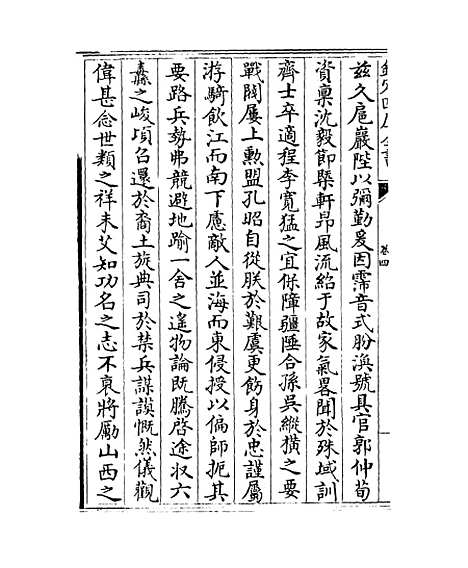 欽定四庫全書
卷四
茲久扈巖陛以彌勤爰因霈音式胗渙號具官郭仲荀
資稟沈毅節槩軒昂風流紹于故家氣畧聞於殊域訓
齊士卒適程李寛猛之宜保障疆陲合孫吳縱橫之要
戰闘屢上勲盟孔昭自從朕於艱虞更飭身於忠謹屬
游騎飲江而南下慮敵人並海而東侵授以偏師扼其
要路兵勢弗競避地踰一舍之遙物論既騰啓途収六
纛之峻頃召還於裔土旅典司於禁兵謀謨慨然儀觀
偉甚念世類之祥未艾知功名之志不衰將厲山西之